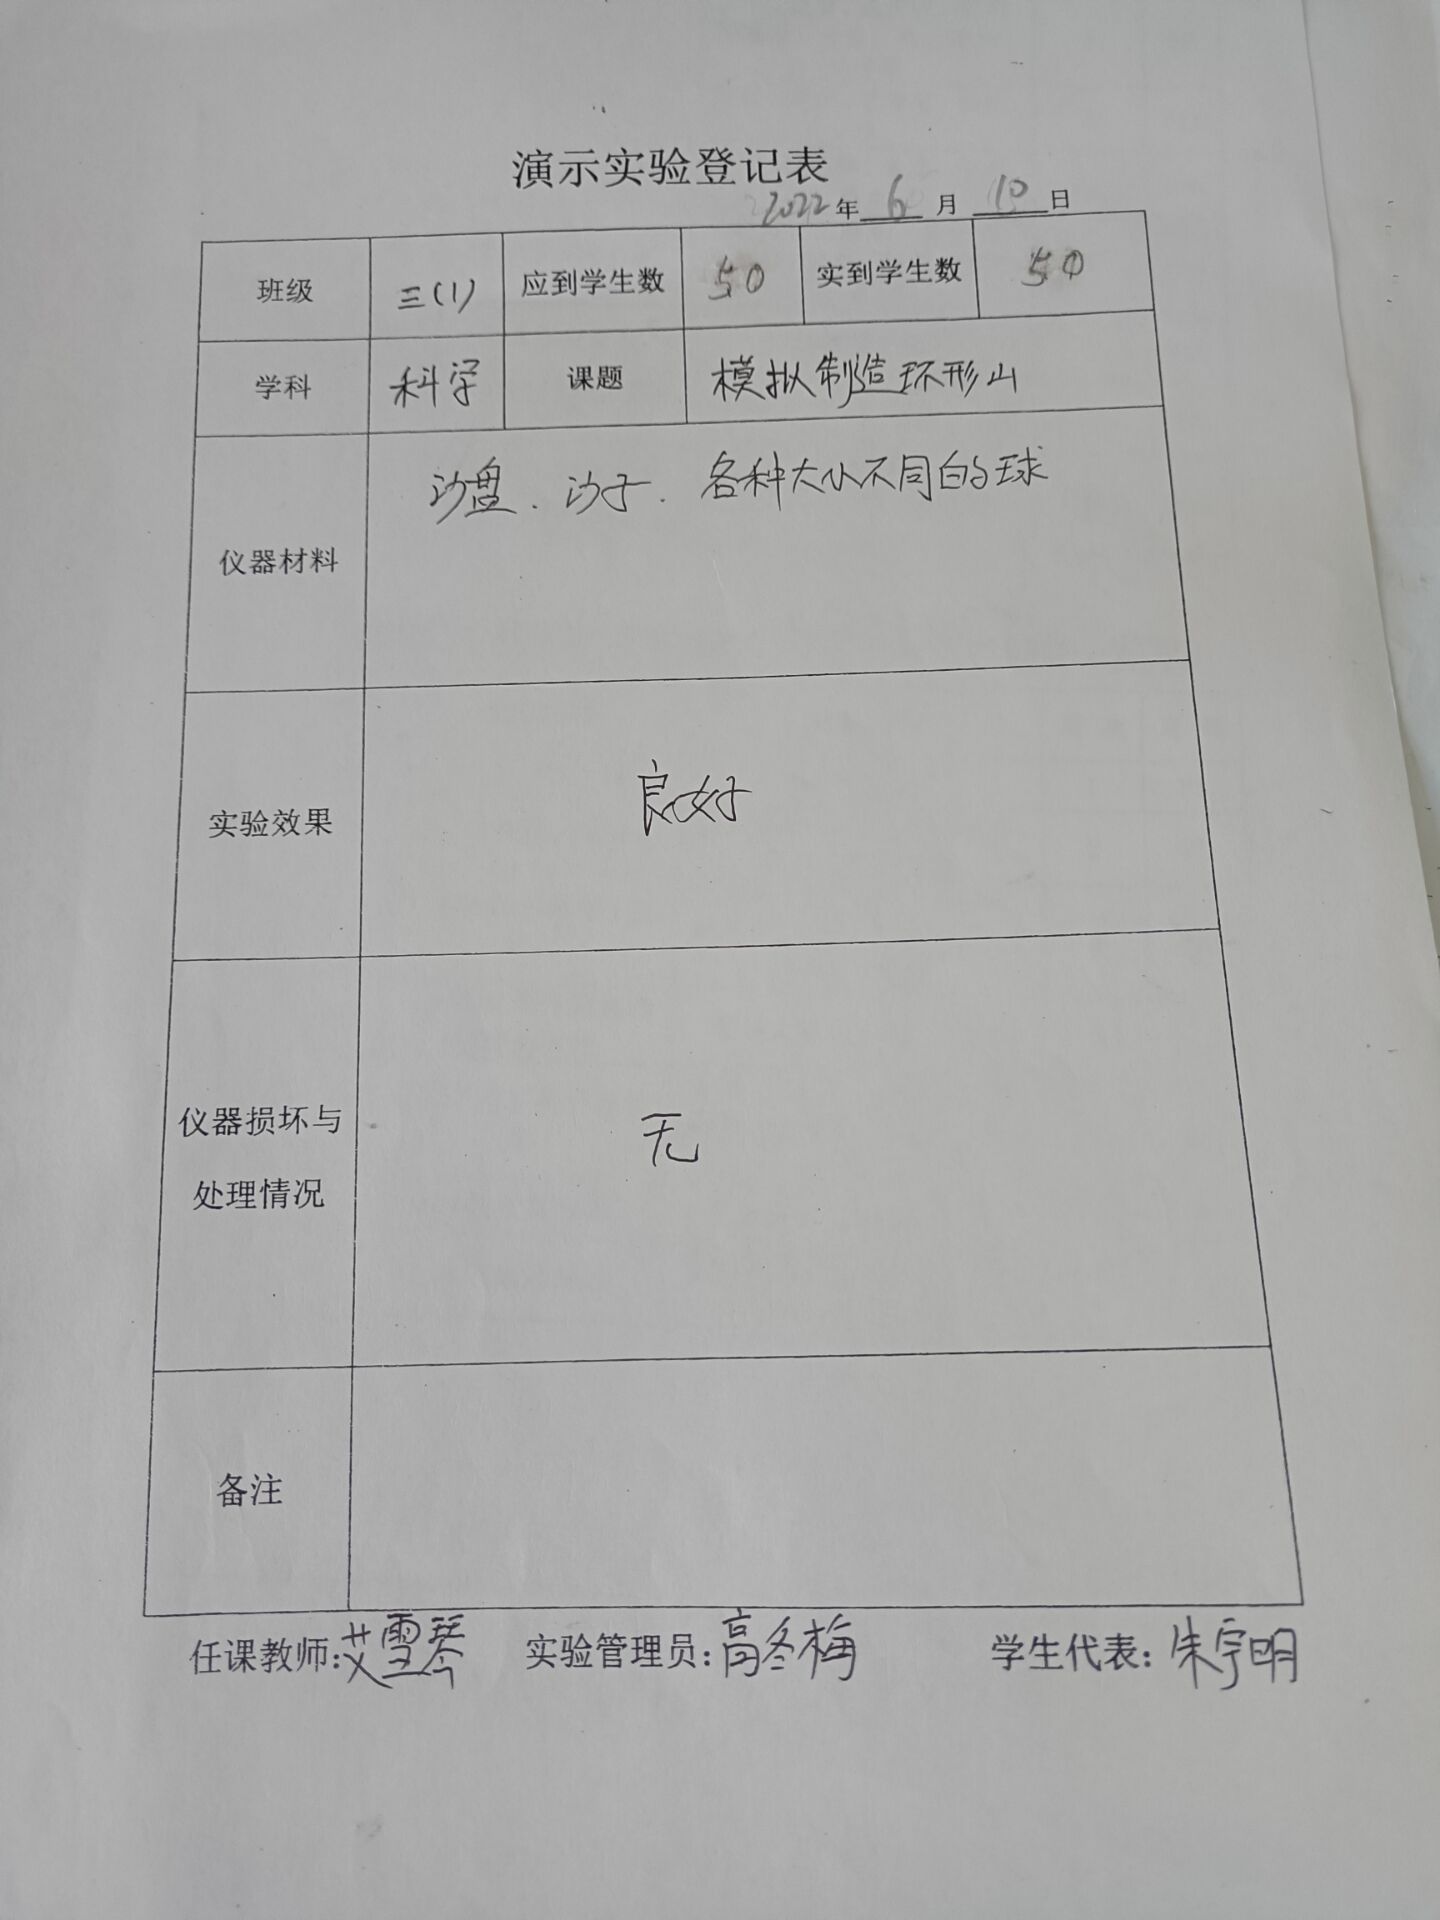 演示实验登记表
2022年 6 月 10 日
班级 三(1) 应到学生数 50 实到学生数 50
学科 科学 课题 模拟制造环形山
仪器材料 沙盘、沙子、各种大小不同的球
实验效果 良好
仪器损坏与
处理情况 无
备注
任课教师:艾雪琴 实验管理员:高冬梅 学生代表:朱宇明